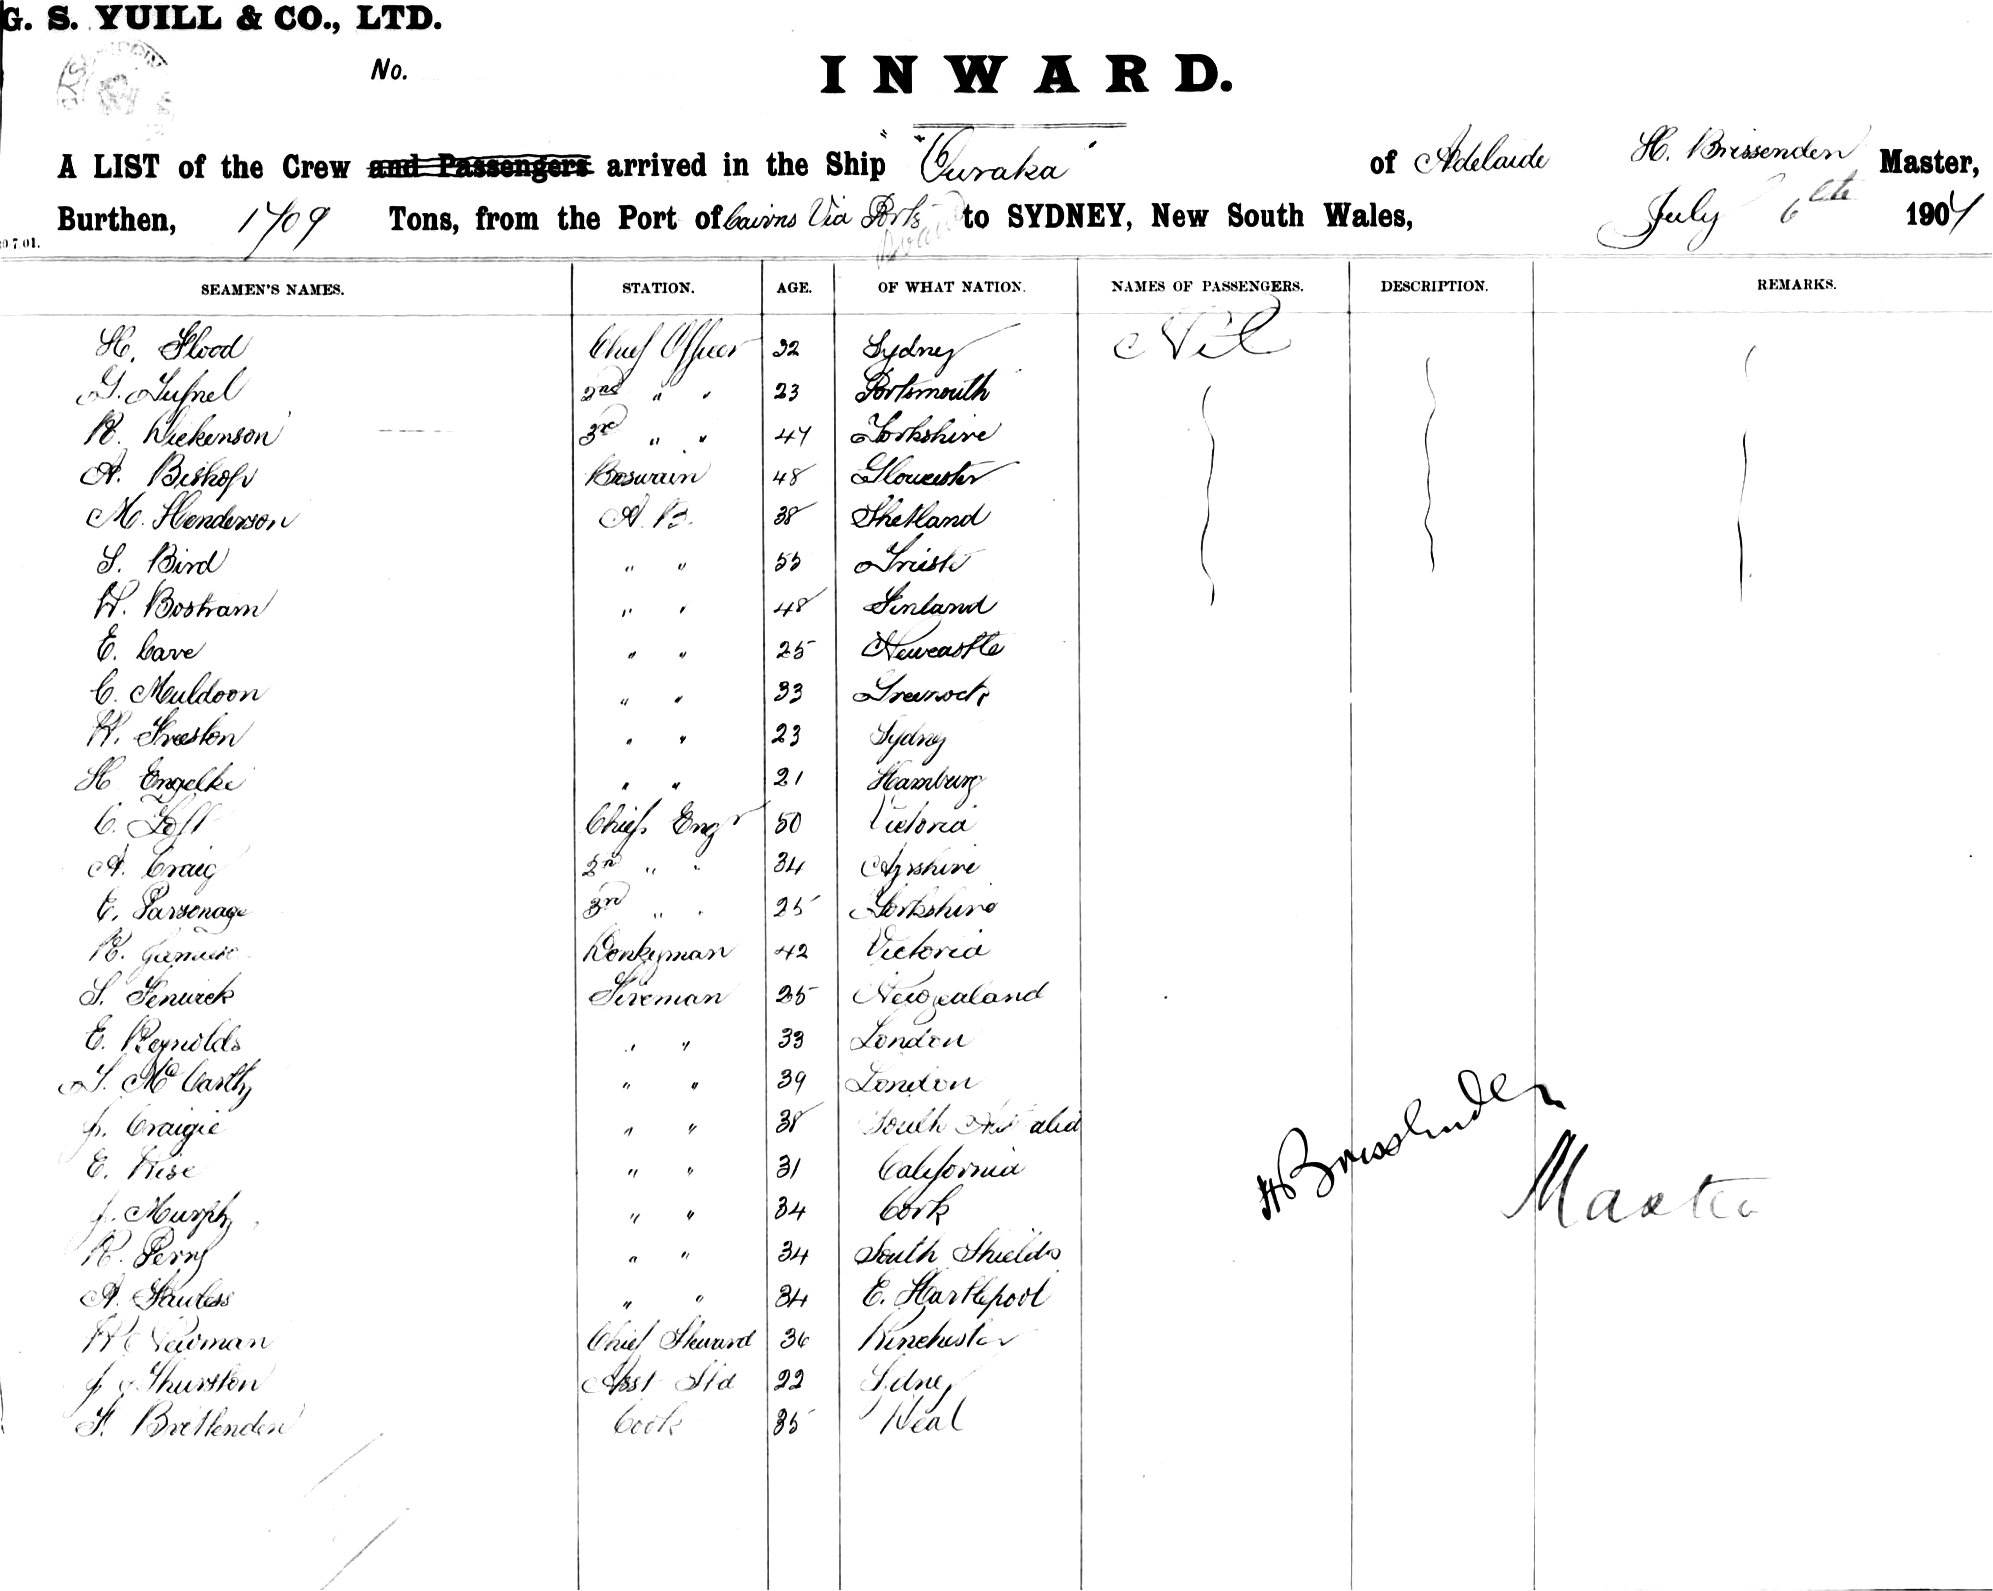 G. S. YUILL & CO., LTD.
No.
INWARD.
A LIST of the Crew and Passengers arrived in the Ship "Ouraka" of Adelaide H. Brissenden Master,
Burthen, 1709 Tons, from the Port of Cairns Via Ports to SYDNEY, New South Wales, July 6th 1904
20.7.01.
SEAMEN'S NAMES. STATION. AGE. OF WHAT NATION. NAMES OF PASSENGERS. DESCRIPTION. REMARKS.
H. Flood Chief Officer 32 Sydney Nil
G. Tufnel 2nd " " 23 Portsmouth
R. Dickenson 3rd " " 47 Yorkshire
A. Bishop Boswain 48 Gloucester
M. Henderson A.B. 38 Shetland
S. Bird " " 55 Trieste
W. Bostram " " 48 Finland
E. Cave " " 25 Newcastle
C. Muldoon " " 33 Greenock
W. Freeston " " 23 Sydney
H Engelke " " 21 Hamburg
C. Chief Engr 50 Victoria
A. Craig 2n " " 34 Ayrshire
E. Parsonage 3rd " " 25 Yorkshire
R. Donkyman 42 Victoria
S. Fenwick Fireman 25 Newzealand
E. Reynolds " " 33 London
T. McCarthy " " 39 London
J. Craigie " " 38 South
E. Rise " " 31 California
J. Murphy " " 34 Cork
R. Perry " " 34 South Shields
A. Sawless " " 34 E. Hartlepool
W Newman Chief Steward 36 Winchester
J Thurston Asst Std 22 Sydney
F. Brittenden Cook 35 Deal
H Brissenden
Master